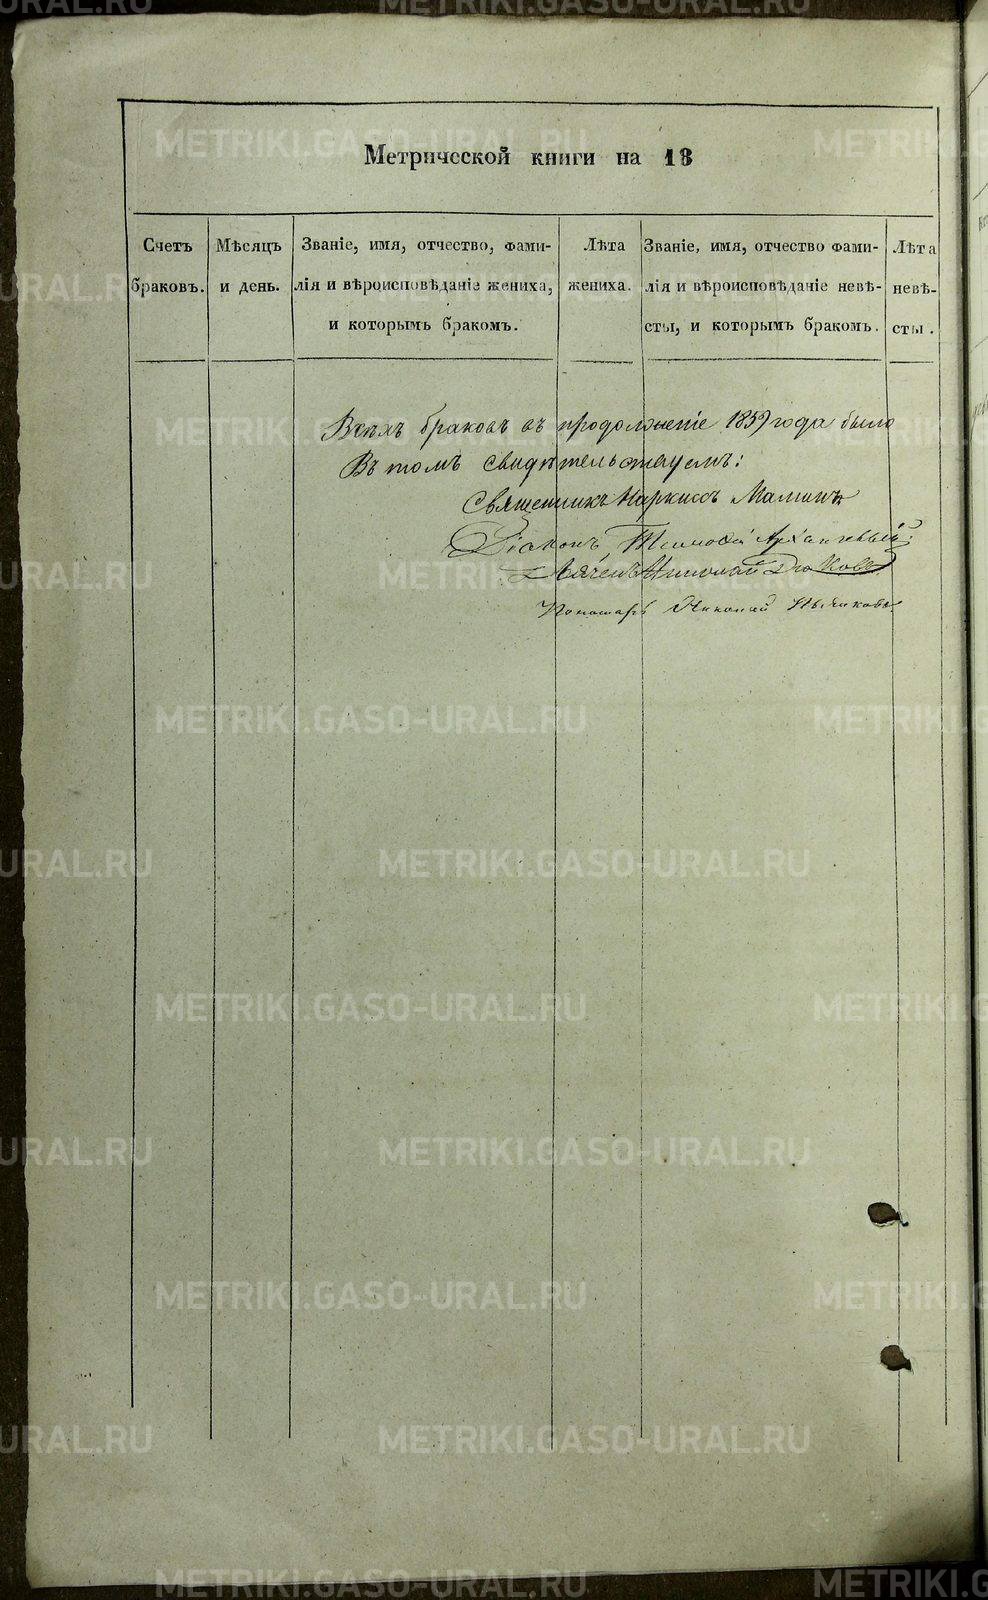 Метрической книги на 18
Счетъ браковъ.
Мѣсяцъ и день.
Званіе, имя, отчество, фами-
лія и вѣроисповѣданіе жениха,
и которымъ бракомъ.
Лѣта жениха.
Званіе, имя, отчество фами-
лія и вѣроисповѣданіе невѣ-
сты, и которымъ бракомъ.
Лѣта невѣ-
сты.
Всѣхъ браковъ въ продолженіе 1859 года было
Въ томъ свидѣтельствуемъ:
Священникъ Наркисъ Маминъ
Діаконъ Тимофей
Николай
Пономарь Николай
METRIKI.GASO-URAL.RU